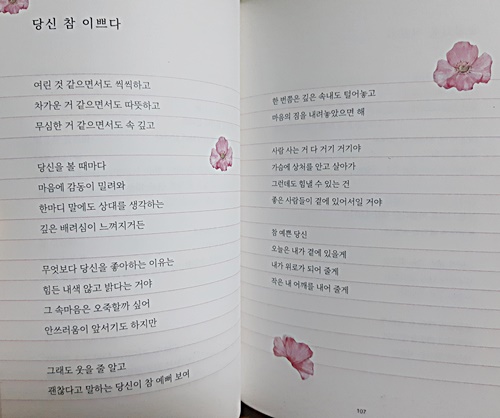 당신 참 이쁘다
여린 것 같으면서도 씩씩하고
차가운 거 같으면서도 따뜻하고
무심한 거 같으면서도 속 깊고
당신을 볼 때마다
마음에 감동이 밀려와
한마디 말에도 상대를 생각하는
깊은 배려심이 느껴지거든
무엇보다 당신을 좋아하는 이유는
힘든 내색 않고 밝다는 거야
그 속마음은 오죽할까 싶어
안쓰러움이 앞서기도 하지만
그래도 웃을 줄 알고
괜찮다고 말하는 당신이 참 예뻐 보여
한 번쯤은 깊은 속내도 털어놓고
마음의 짐을 내려놓았으면 해
사람 사는 거 다 거기 거기야
가슴에 상처를 안고 살아가
그런데도 힘낼 수 있는 건
좋은 사람들이 곁에 있어서일 거야
참 예쁜 당신
오늘은 내가 곁에 있을게
내가 위로가 되어 줄게
작은 내 어깨를 내어 줄게
107